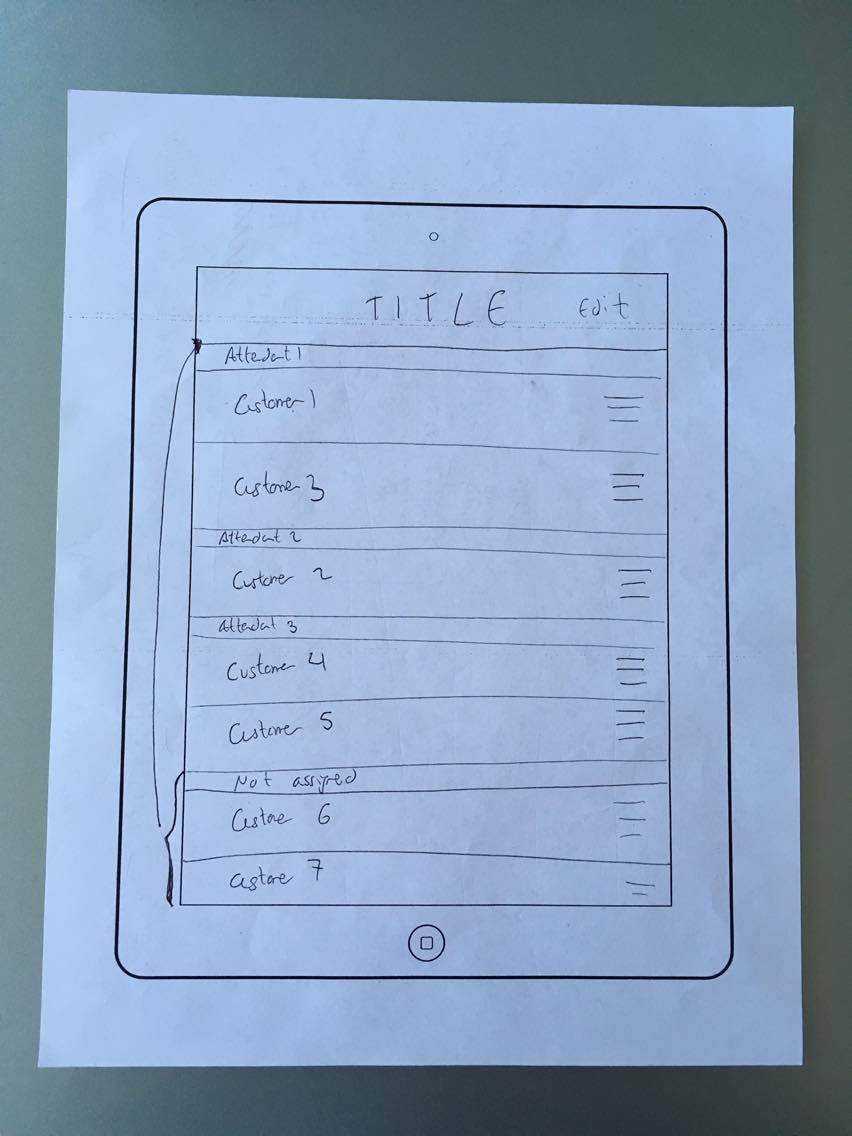 TITLE Edit
Attendant 1
Customer 1
Customer 3
Attendant 2
Customer 2
Attendant 3
Customer 4
Customer 5
Not assigned
Customer 6
Customer 7